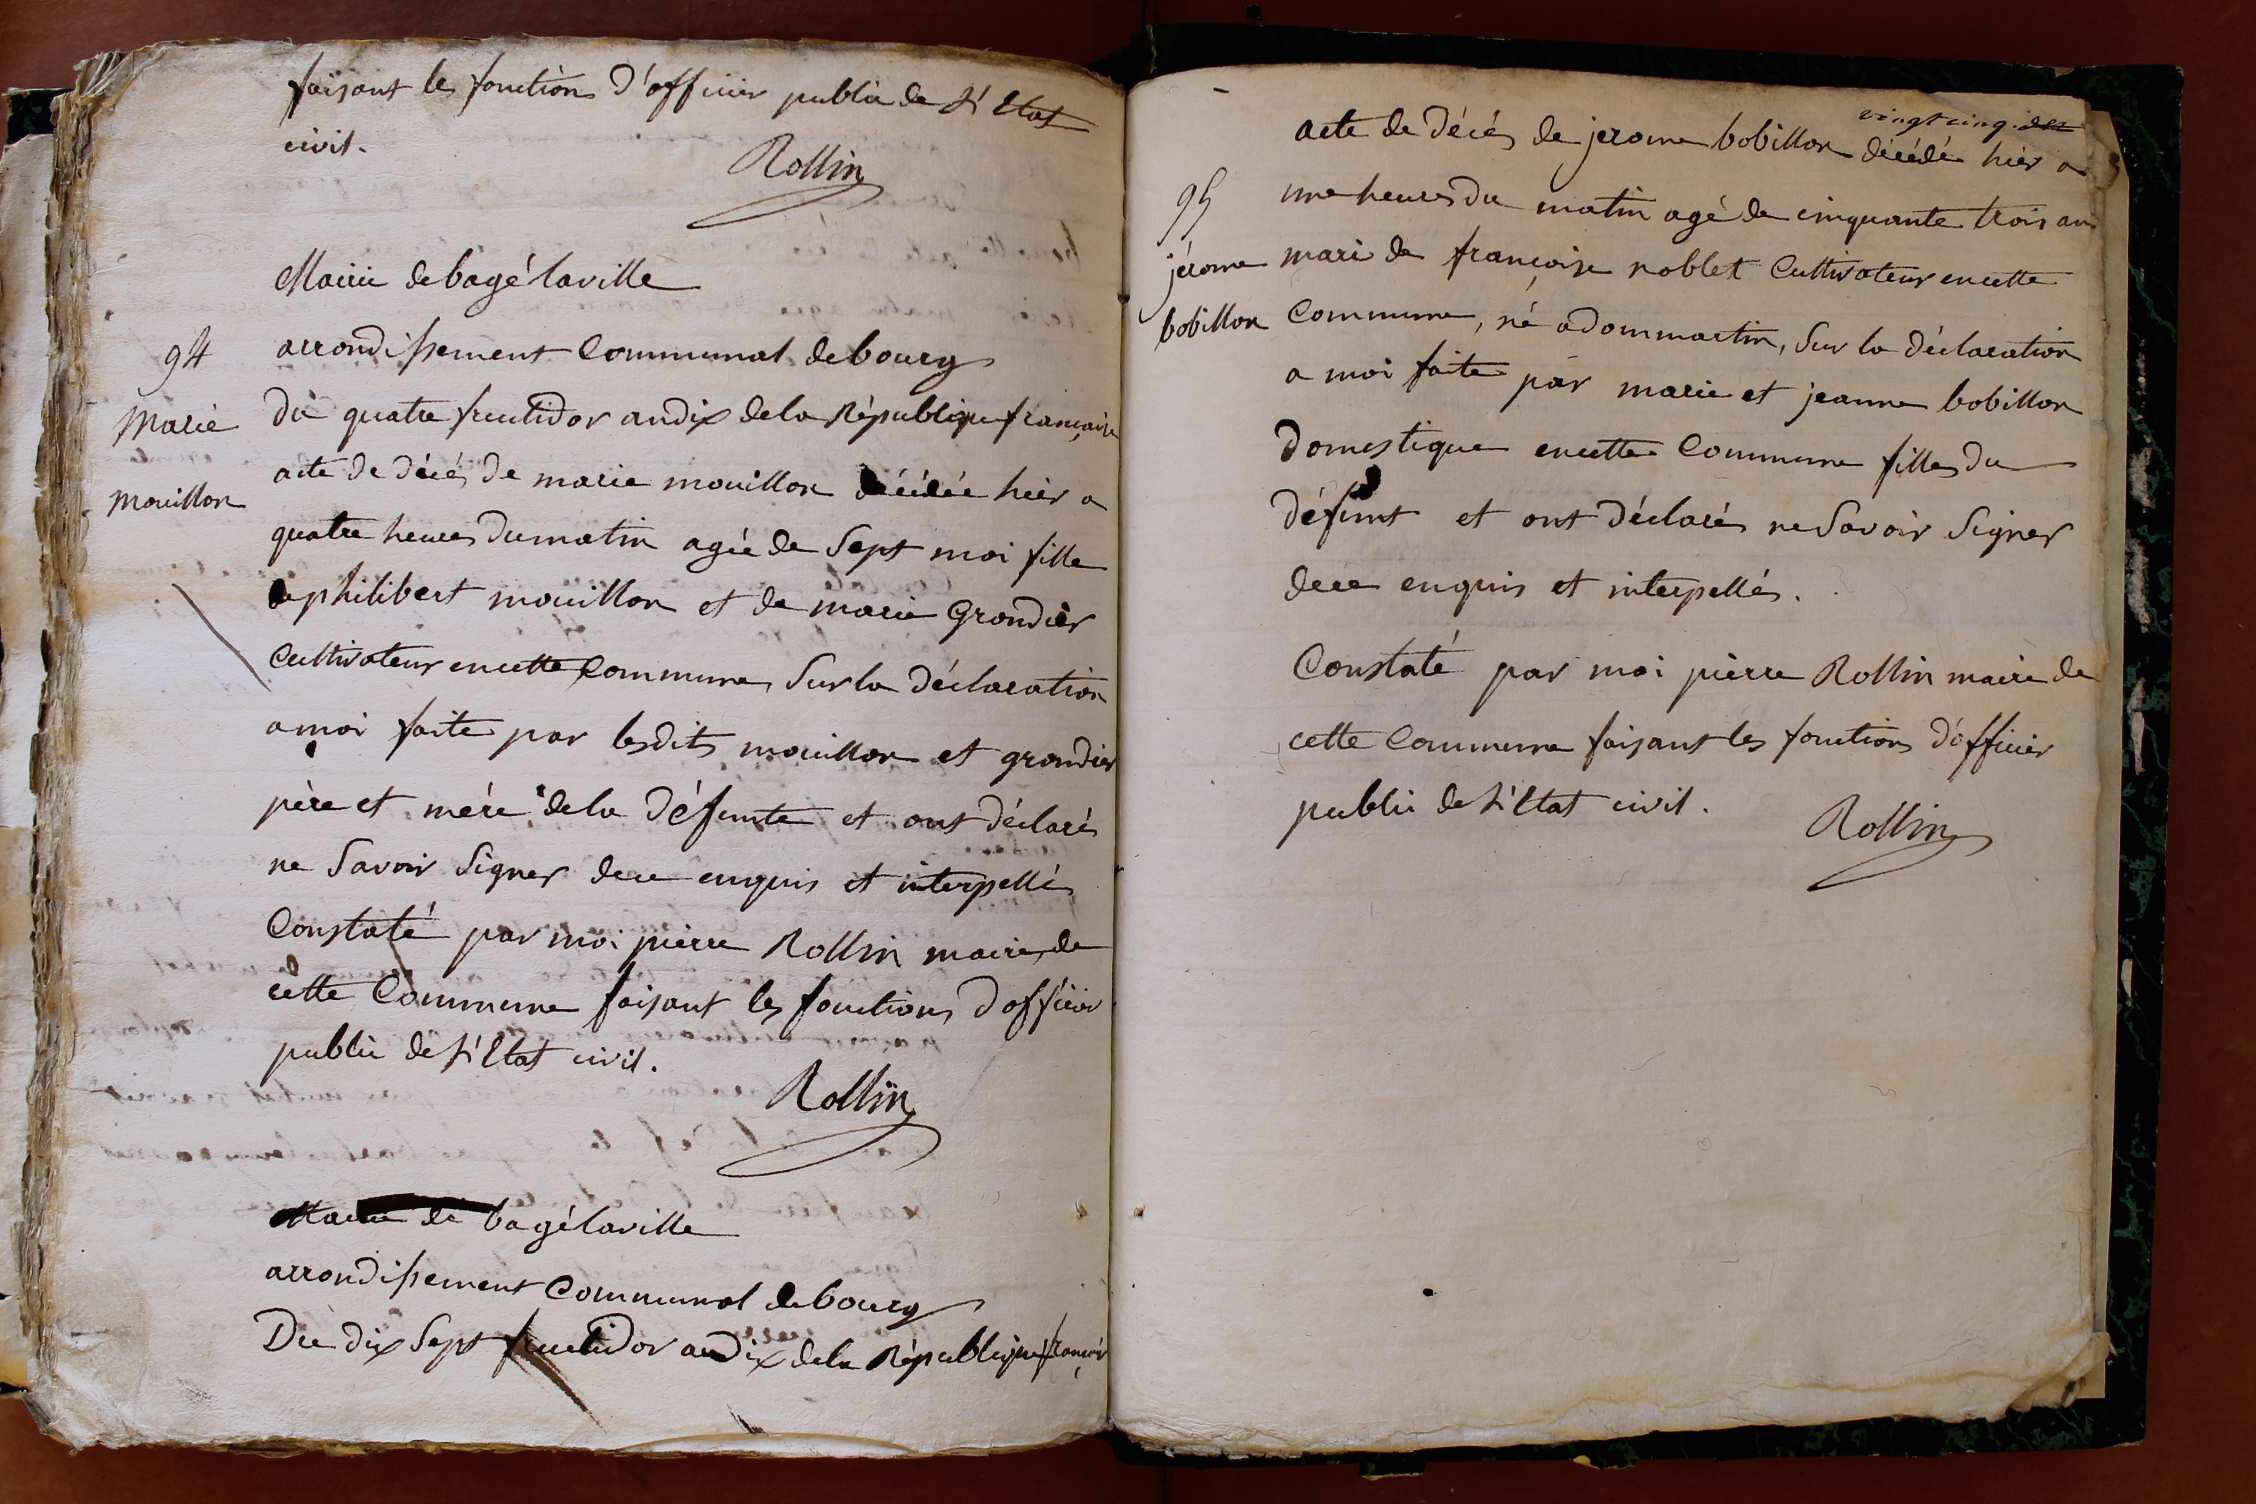 faisant les fonctions d'officier public de L'Etat
civil.
Rollin
Mairie de bagé laville
arrondissement Communal de bourg
94
Marie
Mouillon
du quatre fructidor an dix de la République française
acte de décés de marie mouillon décédée hier a
quatre heures du matin agée de Sept moi fille
de philibert mouillon et de marie Grondier
Cultivateur en cette Commune, Sur la déclaration
a moi faite par lesdits mouillon et grondier
père et mére de la défunte et ont déclarés
ne Savoir Signer de ce enquis et interpellés
Constaté par moi pierre Rollin maire de
cette Commune faisant les fonctions d'officier
public de L'Etat civil.
Rollin
Mairie de bagé laville
arrondissement Communal de bourg
Du dix Sept fructidor an dix de la République française
vingt cinq
acte de décés de jerome bobillon décédé hier a
95
jérome
bobillon
une heures du matin agé de cinquante trois ans
mari de françoise noblet Cultivateur en cette
Commune, né a dommartin, Sur la déclaration
a moi faite par marie et jeanne bobillon
domestique en cette Commune filles du
défunt et ont déclarés ne Savoir Signer
de ce enquis et interpellés.
Constaté par moi pierre Rollin maire de
cette Commune faisant les fonctions d'officier
public de L'Etat civil.
Rollin